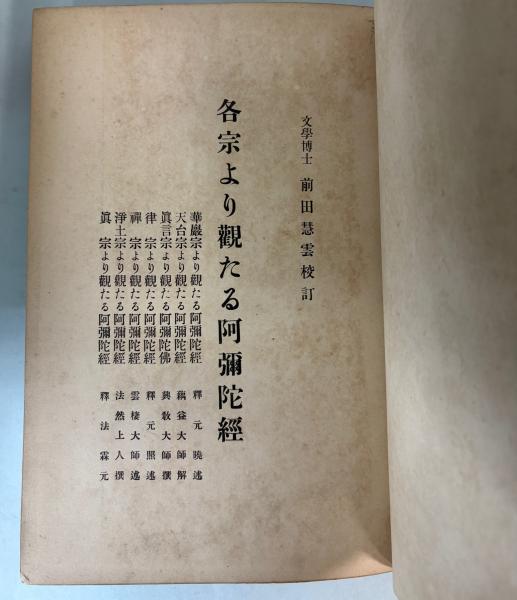 文學博士 前田慧雲校訂
各宗より觀たる阿彌陀經
華嚴宗より觀たる阿彌陀經 釋元曉述
天台宗より觀たる阿彌陀經 藕益大師解
眞言宗より觀たる阿彌陀佛 興敎大師撰
律宗より觀たる阿彌陀經 釋元照述
禪宗より觀たる阿彌陀經 雲棲大師述
淨土宗より觀たる阿彌陀經 法然上人撰
眞宗より觀たる阿彌陀經 釋法霖元